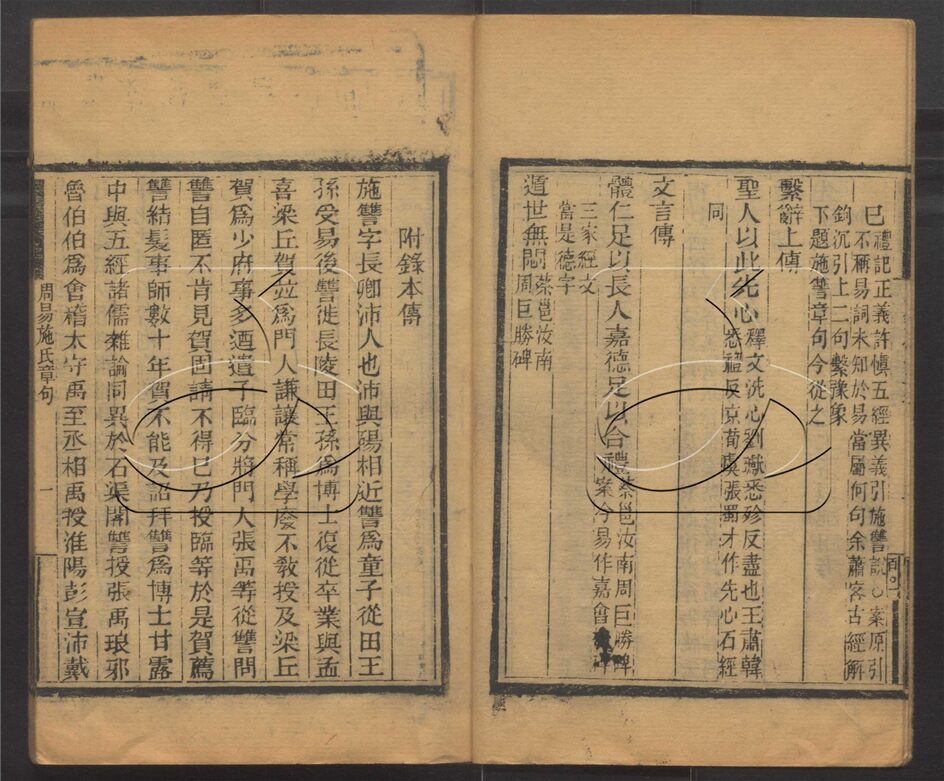 巳禮記正義許慎五經異義引施讐說○案原引
不稱易詞未知於易當屬何句余蕭客古經解
鉤沉引上二句繫豫象
下題施讐章句今從之
繫辭上傳
聖人以此先心釋文洗心劉瓛悉殄反盡也王肅韓
悉禮反京荀虞張蜀才作先心石經
同
文言傳
體仁足以長人嘉德足以合禮蔡邕汝南周巨勝碑
案今易作嘉會
三家經文
當是德字
遁世無悶蔡邕汝南
周巨勝碑
附錄本傳
施讐字長卿沛人也沛與碭相近讐爲童子從田王
孫受易後讐徙長陵田王孫爲博士復從卒業與孟
喜梁丘賀竝爲門人謙讓常稱學廢不敎授及梁丘
賀爲少府事多迺遣子臨分將門人張禹等從讐問
讐自匿不肯見賀固請不得已乃授臨等於是賀薦
讐結髮事師數十年賀不能及詔拜讐爲博士甘露
中與五經諸儒雜論同異於石渠閣讐授張禹琅邪
魯伯伯爲會稽太守禹至丞相禹授淮陽彭宣沛戴
周易施氏章句
一